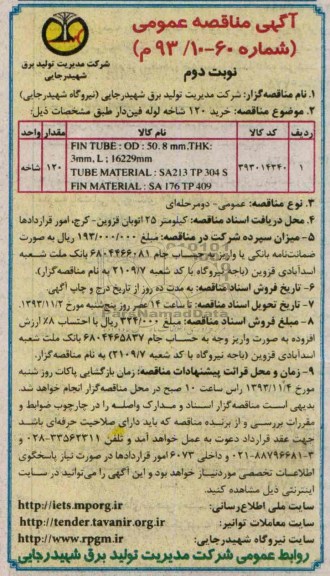 آگهی مناقصه عمومی
(شماره ۶۰-۱۰/ ۹۳ م)
نوبت دوم
شرکت مدیریت تولید برق
شهیدرجایی
۱. نام مناقصه‌گزار: شرکت مدیریت تولید برق شهیدرجایی (نیروگاه شهیدرجایی)
۲. موضوع مناقصه: خرید ۱۲۰ شاخه لوله فین‌دار طبق مشخصات ذیل:
ردیف کد کالا نام کالا مقدار واحد
۱ ۳۹۳۰۱۴۳۴۰ FIN TUBE : OD : 50. 8 mm,THK: ۱۲۰ شاخه
3mm, L ; 16229mm
TUBE MATERIAL : SA213 TP 304 S
FIN MATERIAL : SA 176 TP 409
۳. نوع مناقصه: عمومی- دومرحله‌ای
۴. محل دریافت اسناد مناقصه: کیلومتر ۲۵ اتوبان قزوین- کرج، امور قراردادها
۵- میزان سپرده شرکت در مناقصه: مبلغ ۱۹۳/۰۰۰/۰۰۰ ریال به صورت
ضمانت‌نامه بانکی یا واریز به حساب جام ۶۸۰۴۴۶۶۰۸۱ بانک ملت شعبه
اسدآبادی قزوین (باجه نیروگاه با کد شعبه ۲۱۰۹/۷ به نام مناقصه‌گزار).
۶- تاریخ فروش اسناد مناقصه: به مدت ده روز از تاریخ درج و چاپ آگهی.
۷- تاریخ تحویل اسناد مناقصه: تا ساعت ۱۴ عصر روز پنج‌شنبه مورخ ۱۳۹۳/۱۱/۲.
۸- مبلغ فروش اسناد مناقصه: مبلغ ۳۲۴/۰۰۰ ریال با احتساب ۸٪ ارزش
افزوده به صورت واریز وجه به حساب جام ۶۸۰۴۴۶۵۸۳۷ بانک ملت شعبه
اسدآبادی قزوین (باجه نیروگاه با کد شعبه ۲۱۰۹/۷) به نام مناقصه‌گزار.
۹- زمان و محل قرائت پیشنهادات مناقصه: زمان بازگشایی پاکات روز شنبه
مورخ ۱۳۹۳/۱۱/۴ راس ساعت ۱۰ صبح در محل مناقصه‌گزار انجام خواهد شد.
بدیهی است مناقصه‌گزار اسناد و مدارک واصله را در چارچوب ضوابط و
مقررات بررسی و از برنده مناقصه که باید دارای صلاحیت حرفه‌ای باشد
جهت عقد قرارداد دعوت به عمل خواهد آمد و تلفن ۳۳۵۶۲۳۱۱-۰۲۸ و
۳-۸۸۷۹۶۶۸۱-۰۲۱ و داخلی ۶۰۷۳ امور قراردادها در صورت نیاز پاسخگوی
اطلاعات تخصصی موردنیاز خواهد بود و این آگهی را می‌توانید در سایت
اینترنتی ذیل مشاهده کنید.
سایت ملی اطلاع‌رسانی: http://iets.mporg.ir
سایت معاملات توانیر: http://tender.tavanir.org.ir
سایت نیروگاه شهیدرجایی: http://www.rpgm.ir
روابط عمومی شرکت مدیریت تولید برق شهیدرجایی